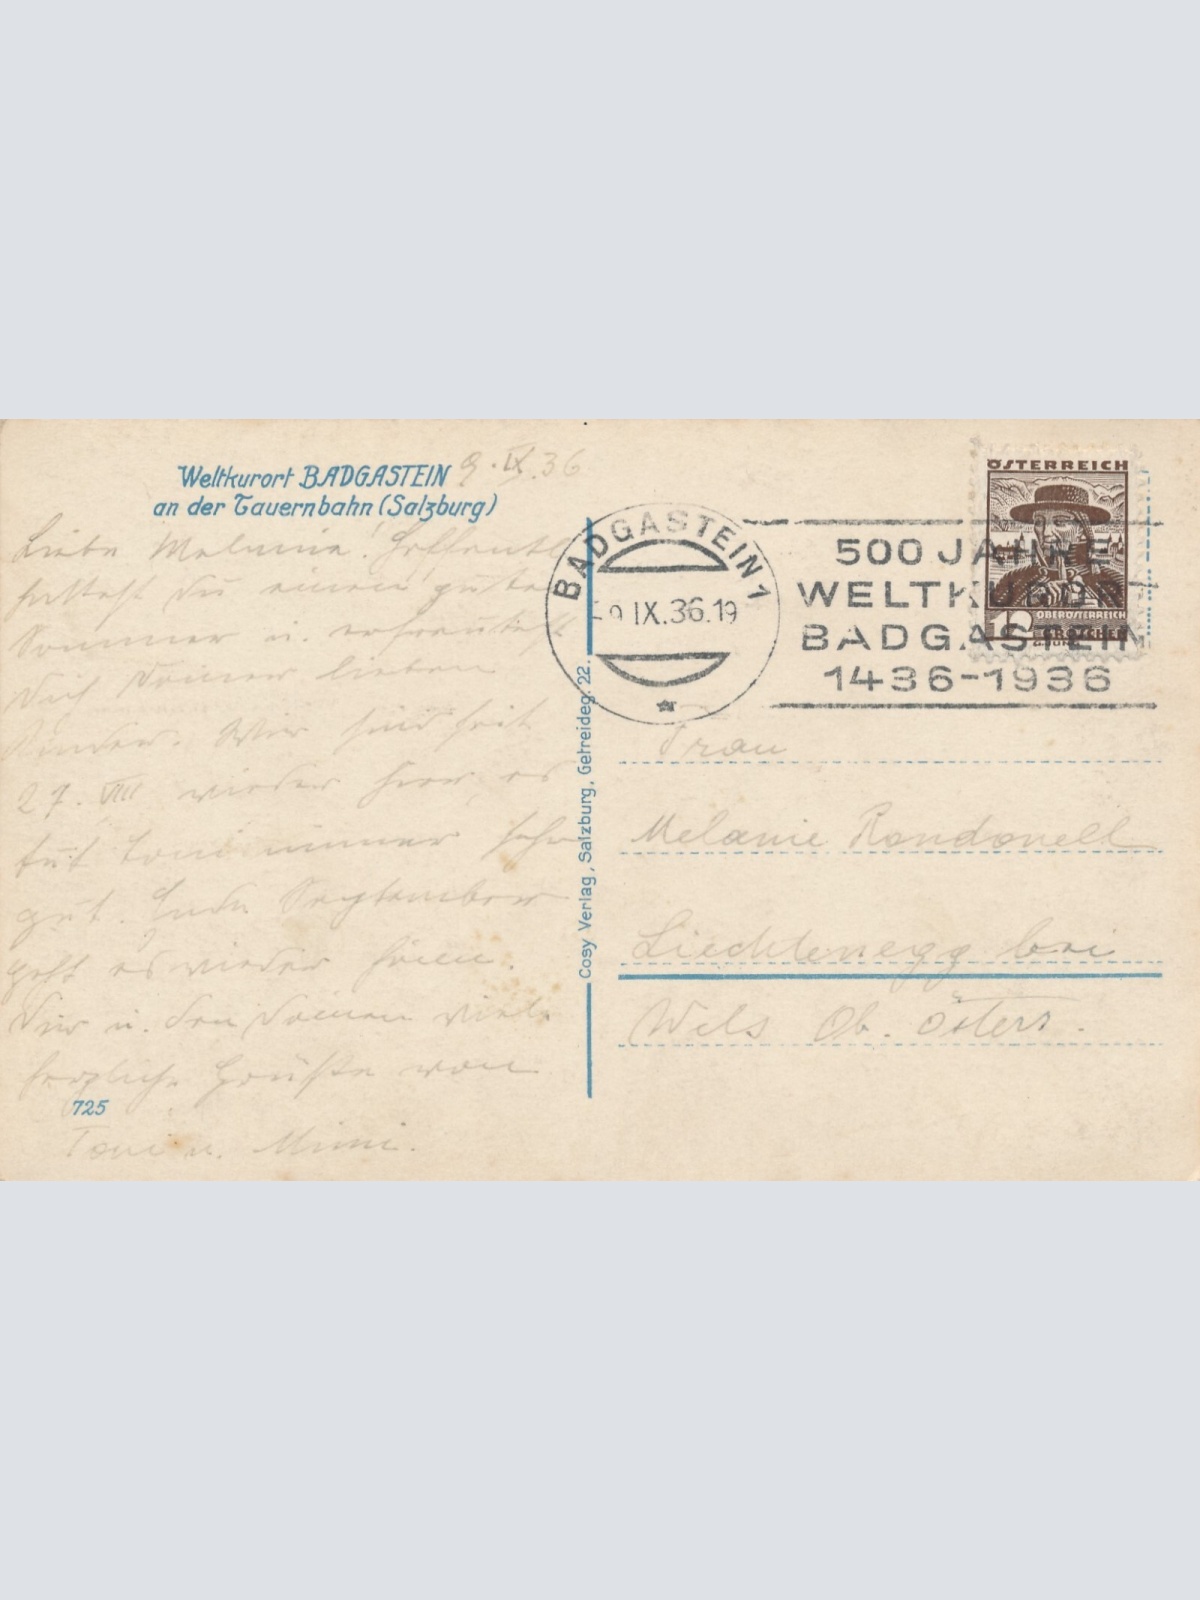 Weltkurort BADGASTEIN
an der Tauernbahn (Salzburg)
9.IX.36
Liebe Melanie! Hoffentl.
hattest Du einen guten
Sommer u. erfreutest
Dich Deiner lieben
Kinder. Wir sind seit
27. VIII wieder hier, es
tut Toni immer sehr
gut. Ende September
geht es wieder heim.
Dir u. den Deinen viele
herzliche Grüße von
725
Toni u. Mimi.
Cosy Verlag, Salzburg, Getreideg. 22.
BADGASTEIN 1
9.IX.36.19
500 JAHRE
WELTKURORT
BADGASTEIN
1436-1936
ÖSTERREICH
OBERÖSTERREICH
GROSCHEN
Frau
Melanie
Liechtenegg bei
Wels Ob. Österr.